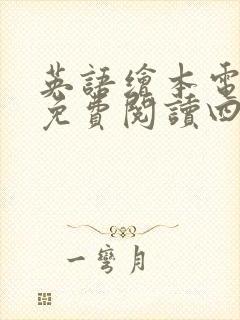 英語繪本電
免費閱讀四
一彎月